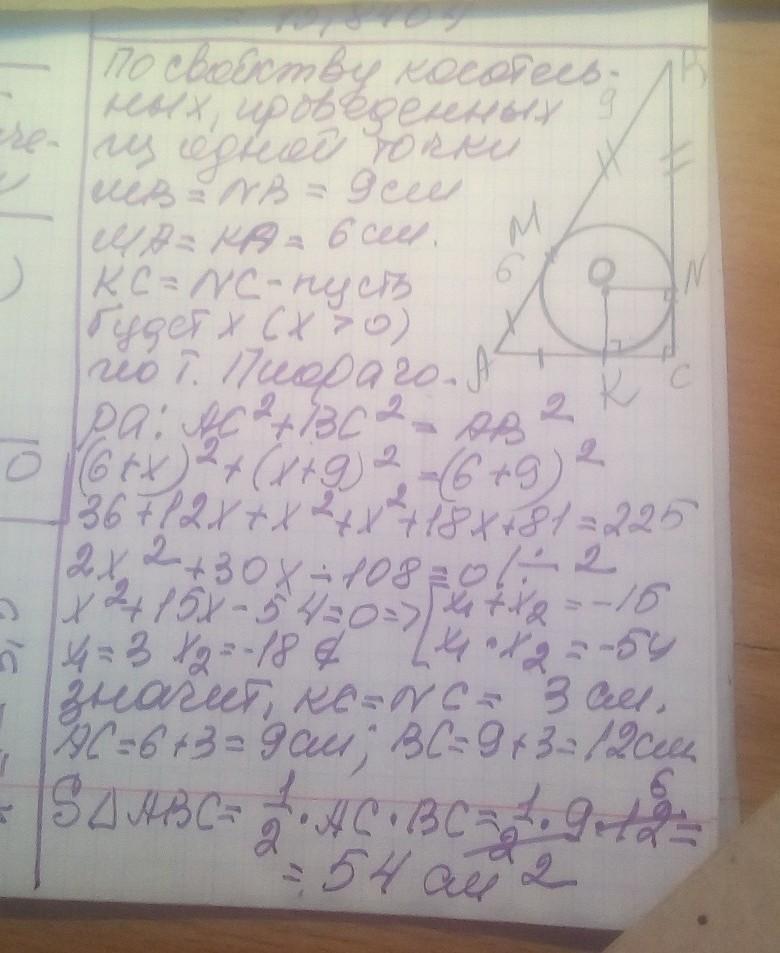 По свойству касатель-
ных, проведенных
из одной точки
MB = NB = 9 см
MA = KA = 6 см.
KC = NC - пусть
будет x (x > 0)
по т. Пифаго-
ра: AC² + BC² = AB²
(6+x)² + (x+9)² = (6+9)²
36+12x+x²+x²+18x+81=225
2x²+30x-108=0 | ÷ 2
x²+15x-54=0 => [ x₁+x₂ = -15
x₁=3 x₂=-18 ∉ [ x₁·x₂ = -54
значит, KC = NC = 3 см.
AC=6+3=9см; BC=9+3=12см
S∆ABC = 1/2 · AC · BC = 1/2 · 9 · 12 =
6
= 54 см²
B
9
M
6
O
N
A
K
C